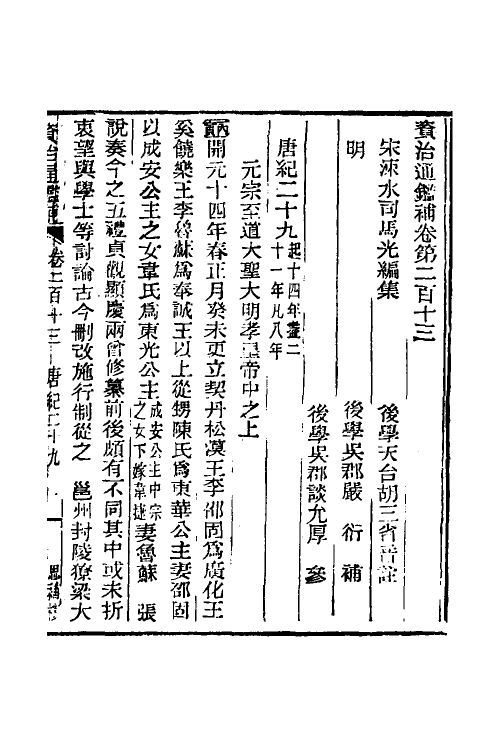 資治通鑑補卷第二百十三
宋涑水司馬光編集
後學天台胡三省音註
明
後學吳郡嚴衍補
後學吳郡談允厚參
唐紀二十九起十四年盡二十一年凡八年
元宗至道大聖大明孝皇帝中之上
開元十四年春正月癸未更立契丹松漠王李邵固爲廣化王
奚饒樂王李魯蘇爲奉誠王以上從甥陳氏爲東華公主妻邵固
以成安公主之女韋氏爲東光公主成安公主中宗之女下嫁韋捷妻魯蘇 張
說奏今之五禮貞觀顯慶兩曾修纂前後頗有不同其中或未折
衷望與學士等討論古今刪改施行制從之 邕州封陵獠梁大
資治通鑑補 卷二百十三 唐紀二十九 一